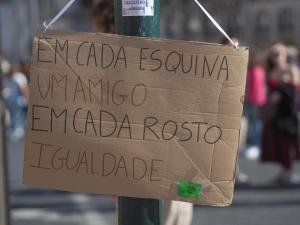 EM CADA ESQUINA
UM AMIGO
EM CADA ROSTO
IGUALDADE